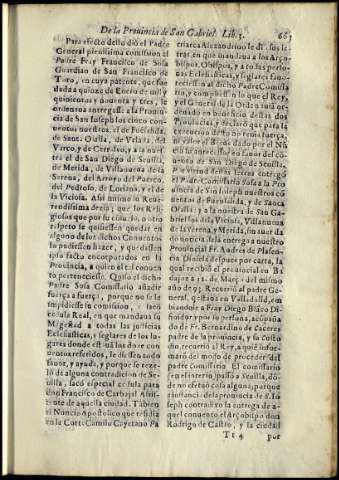 De la Prouincia de San Gabriel. Lib. 5. 663
Para efecto dello dió el Padre
General plenissima comission al
Padre Fray Francisco de Sosa
Guardian de San Francisco de
Toro, en cuya patente, que fue
dada a quinze de Enero de mil y
quinientos y nouenta y tres, le
ordenò entregasse a la Prouincia
de San Ioseph los cinco conuentos
nuestros, el de Fuensalida,
de Santa Olalla, de Velada, del
Viço, y de Cerralvo, y a nuestra
el de San Diego de Seuilla,
de Merida, de Villanueua de la
Serena, del Arroyo del Puerco,
del Pedroso, de Loriana, y el de
la Viciosa. Assi mismo le Reuerendissima
dezia, que los Religiosos
que por su consuelo, o otro
respeto se quisiessen quedar en
alguno de los dichos Conuentos
lo pudiessen hazer, y quedassen
ipso facto encorporados en la
Prouincia, a quien el tal conuento
perteneciesse. Quiso el dicho
Padre Sosa Comissario añadir
fuerça a fuerça, porque no se le
impidiesse su comission, y sacò
cedula Real, en que mandaua su
Magestad a todas las justicias
Eclesiasticas, y seglares de los lugares
donde està las dichas conuentos
referidos, le diessen todo
fauor, y ayuda, y porque se rezelò
de alguna contradicion de Seuilla,
sacò especial cedula para
don Francisco de Carbajal Assistente
de aquella ciudad. Tābien
el Nuncio Apostolico que residia
en la Corte Camilo Cayetano Patriarca
Alexandrino le dió sus letras
en que mandaua a los Arçobispos,
Obispos, y a todas personas
Eclesiasticas, y seglares fauoreciessen
al dicho Padre Comissario,
y cumpliesse lo que el Rey,
y el General de la Orden auia ordenado
en beneficio destas dos
Prouincias, y declarò que para la
execucion desto no tenia fuerça,
ni valor el Breue dado por el Nūcio
su predecessor en fauor del conuento
de San Diego de Seuilla.
Y en virtud destas letras entregò
el Padre Comissario Sosa a la Prouincia
de San Ioseph nuestros conuentos
de Fuensalida, y de Santa
Olalla; y a la nuestra de San Gabriel
los de la Viciosa, Villanueua
de la Serena, y Merida, sin auer dado
noticia de la entrega a nuestro
Prouincial Fr. Andres de Plasencia.
Dioselas despues por carta, la
qual recibiò el prouincial en Badajoz
a 12. de Março del mismo
año de 93. Recurriò al padre General,
q̃ estaua en Valladolid, embiandole
a Fray Diego Bravo Difinidor
y por su persona, acompañado
de Fr. Bernardino de Caceres
padre de la prouincia, y su Custodio,
recurriò al Rey, a quiē informarō
del modo de proceder del
padre Comissario. El comissario
en el interin passò a Seuilla, donde
no efetuò cosa alguna, porque
aunq̃ la prouincia de S. Ioseph
contradixo la entrega de aquel
conuento el Arçobispo don
Rodrigo de Castro, y la ciudad
Tt 4 por